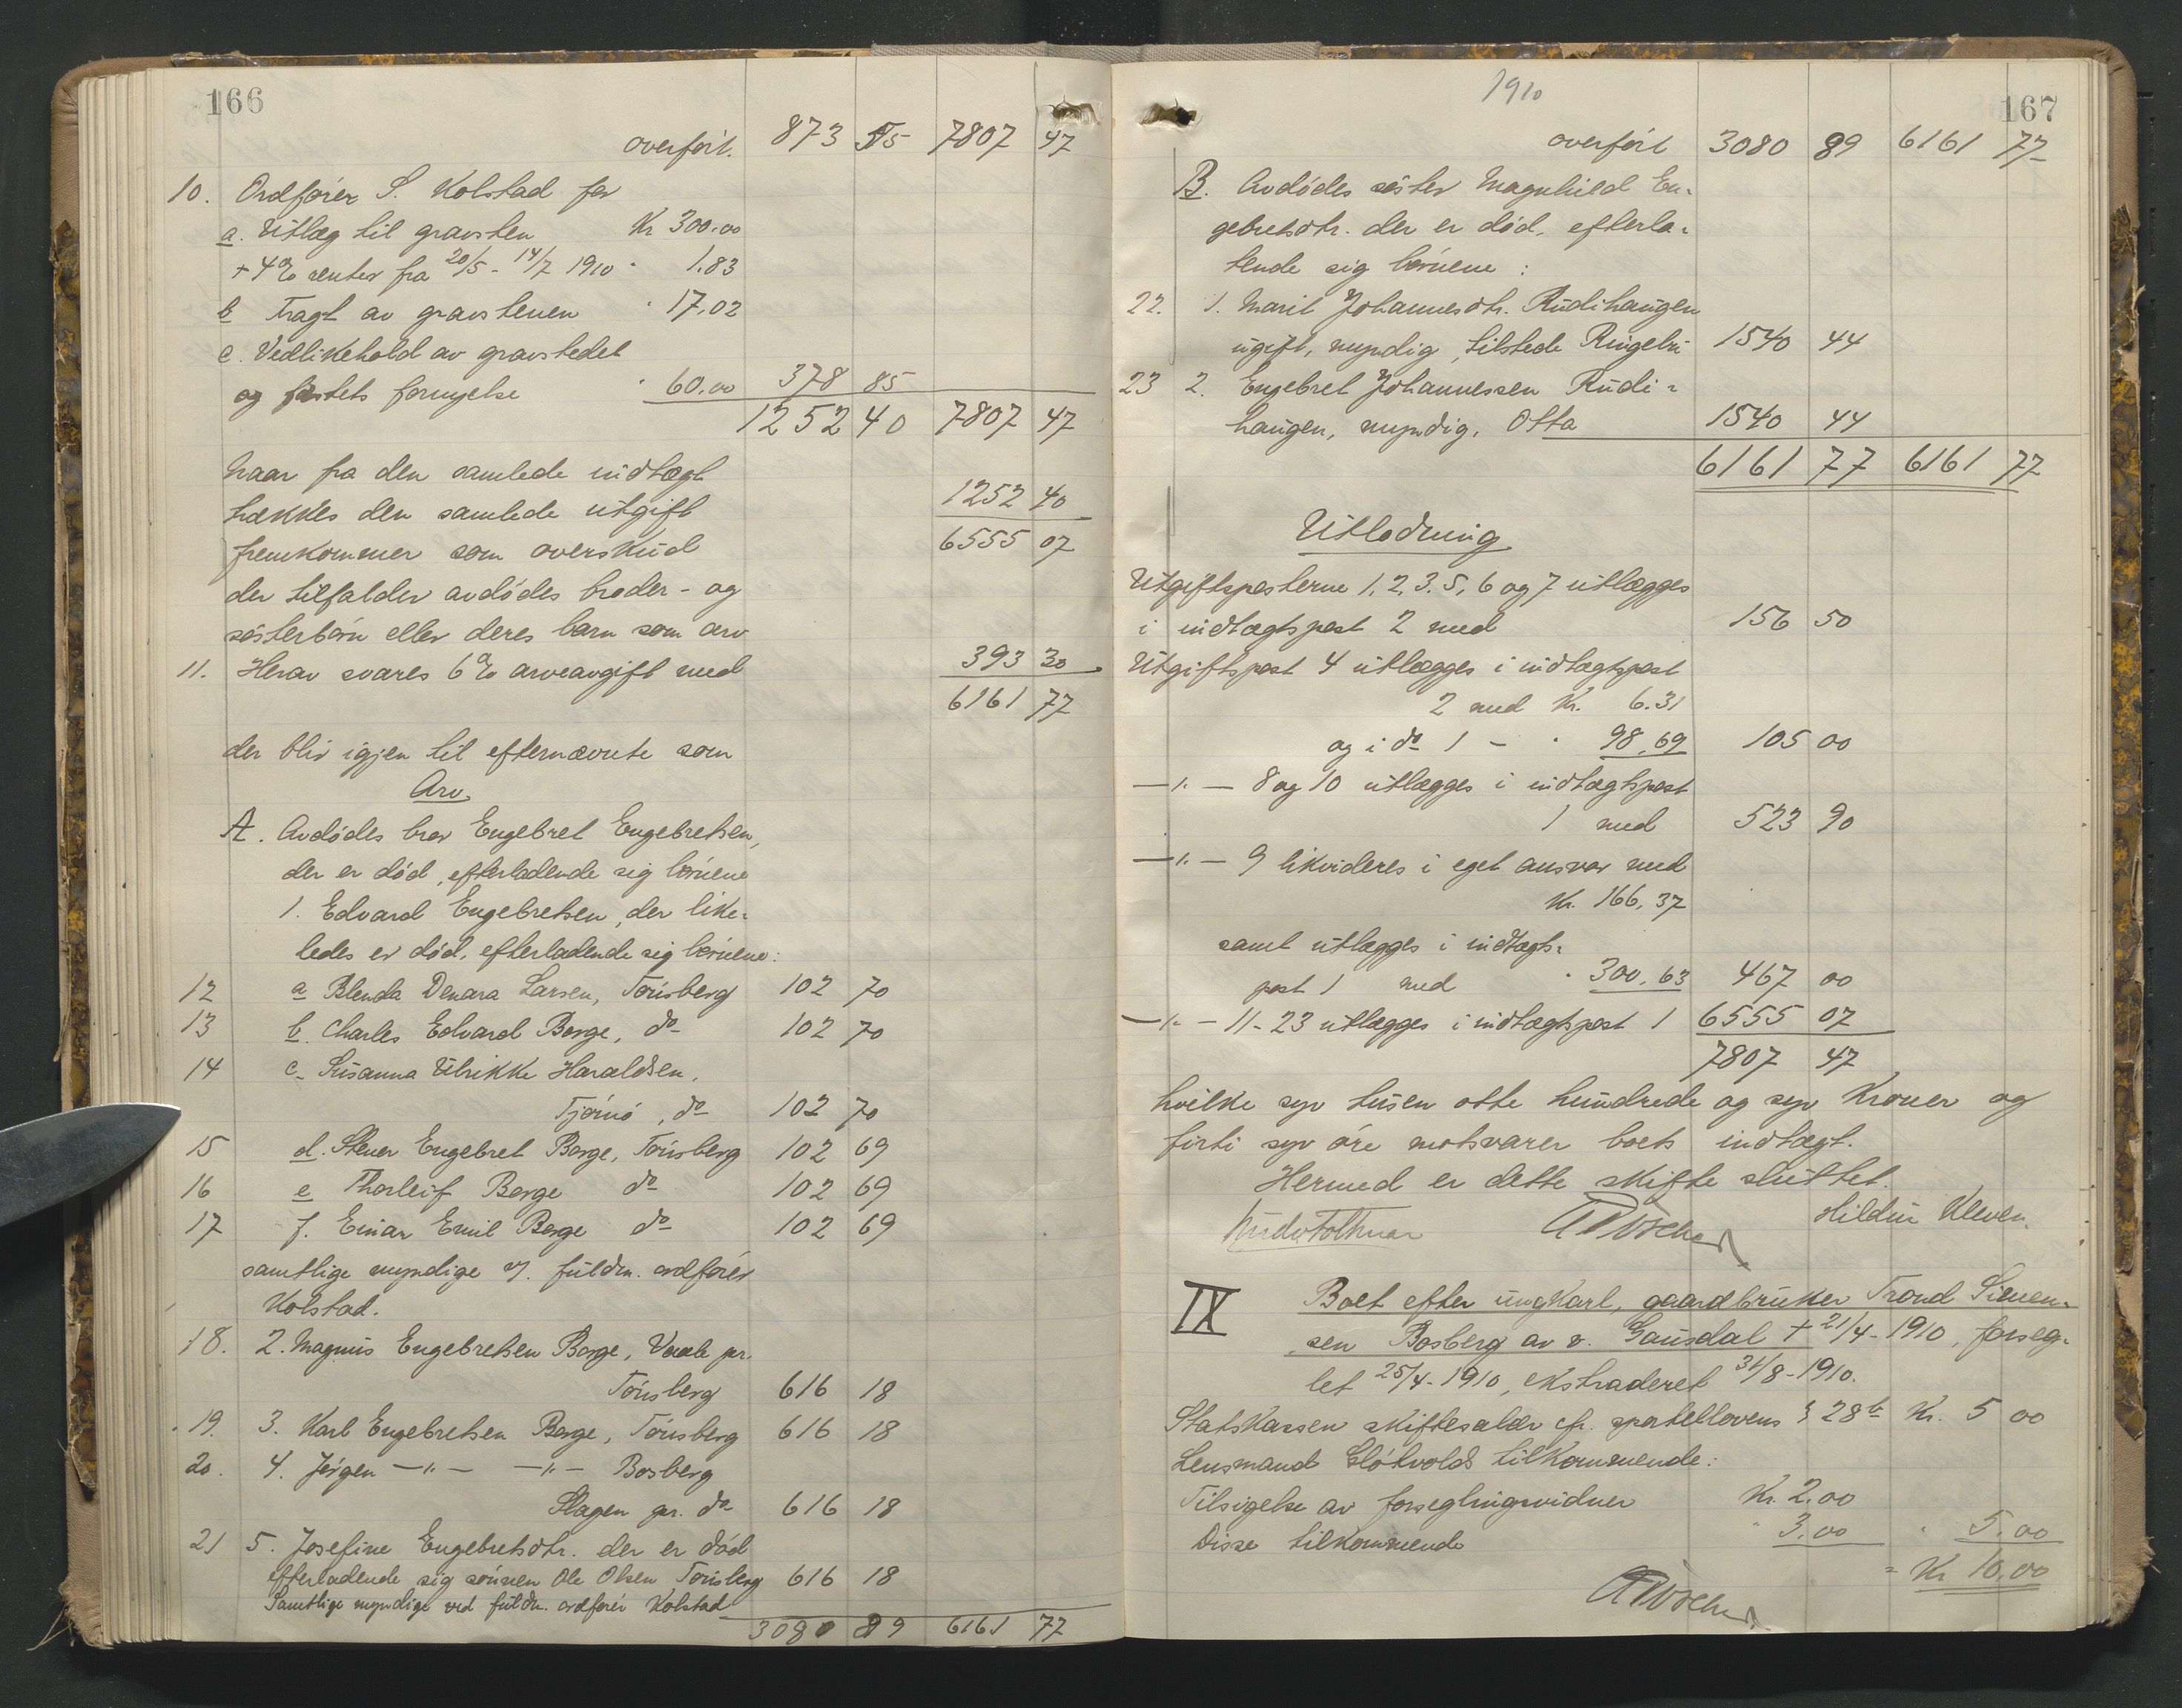 166
overført. 873 55 7807 47
10. Ordfører S. Kolstad for
a. Utlæg til gravsten Kr 300.00
+ 4% renter fra 20/5 - 14/7 1910 " 1.83
b Fragt av gravstenen " 17.02
c. Vedlikehold av gravstedet
og festets fornyelse " 60.00 378 85
1252 40 7807 47
Naar fra den samlede indtægt
trækkes den samlede utgift 1252 40
fremkommer som overskud 6555 07
der tilfalder avdødes broder- og
søsterbørn eller deres barn som arv
11. Herav svares 6% arveavgift med 393 30
6161 77
der bliv igjen til efternævnte som
Arv.
A. Avdødes bror Engebret Engebretsen,
der er død, efterladende sig børnene
1. Edvard Engebretsen, der like=
ledes er død, efterladende sig børnene:
12 a Blenda Denara Larsen, Tønsberg 102 70
13 b. Charles Edvard Borge, do 102 70
14 c. Susanna Ulrikke Haraldsen,
Tjømø, do 102 70
15 d. Stener Engebret Borge, Tønsberg 102 69
16 e Thorleif Borge do 102 69
17 f. Einar Emil Borge do 102 69
samtlige myndige v/. fuldm. ordfører
Kolstad.
18. 2. Magnus Engebretsen Borge, pr.
Tønsberg 616 18
19. 3. Karl Engebretsen Borge, Tønsberg 616 18
20. 4. Jørgen —"— —"— Bosberg
Slagen pr. do 616 18
21 5. Josefine Engebretsdtr. der er død
efterladende sig sønnen Ole Olsen, Tønsberg 616 18
Samtlige myndige ved fuldm. ordfører Kolstad
3080 89 6161 77
1910
167
overført 3080 89 6161 77
B. Avdødes søster Magnhild En=
gebretsdtr. der er død, efterla=
tende sig børnene:
22. 1. Marit Johannesdtr. Rudihaugen
ugift, myndig, tilstede Ringebu 1540 44
23 2. Engebret Johannessen Rudi=
haugen, myndig, Otta 1540 44
6161 77 6161 77
Utlodning
Utgiftsposterne 1, 2, 3, 5, 6 og 7 utlægges
i indtægtspost 2 med 156 50
Utgiftspost 4 utlægges i indtægtspost
2 med Kr. 6.31
og i do 1 - " 98.69 105 00
—"— 8 og 10 utlægges i indtægtspost
1 med 523 90
—"— 9 likvideres i eget ansvar med
Kr. 166,37
samt utlægges i indtægts=
post 1 med " 300,63 467 00
—"— 11-23 utlægges i indtægtspost 1 6555 07
7807 47
hvilke syv tusen otte hundrede og syv Kroner og
førti syv øre motsvarer boets indtægt.
Hermed er dette skifte sluttet.
Hildur Kleven.
IX Boet efter ungkarl, gaardbruker Trond Simen=
sen Bosberg av v. Gausdal + 21/4-1910, forseg=
let 25/4-1910, ekstraderet 31/8-1910.
Statskassen skiftesalær cfr. sportellovens § 28 b Kr. 5 00
Lensmand Sløtvolds tilkommende:
Tilsigelse av forseglingsvidner Kr. 2.00
Disse tilkommende " 3.00 " 5.00
= Kr 10,00